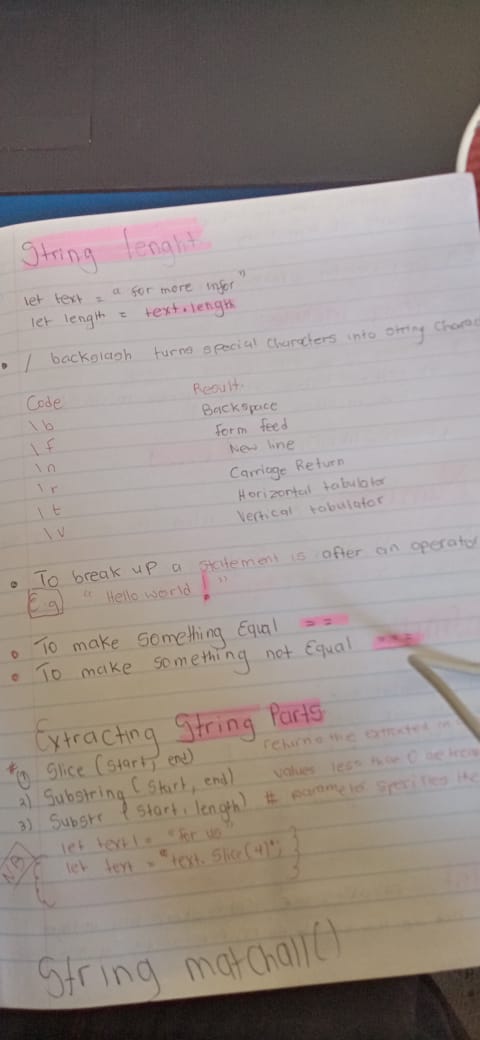 String lenght
let text = " for more infor"
let length = text.length
• / backslash turns special characters into string
Code Result
\b Backspace
\f form feed
\n New line
\r Carriage Return
\t Horizontal tabulator
\v Vertical tabulator
• To break up a statement is after an operator
E.g " Hello world ! "
• To make something Equal ==
• To make something not Equal
Extracting String Parts
① Slice (start, end) returns the extracted in
2) Substring (start, end) values less than 0 are
3) Substr (start, length) # parameter specifies the
NB { let text1 = "for us" }
let text = "text. Slice(4)";
String matchall()